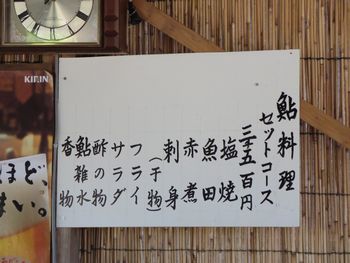 鮎料理
セットコース
三千五百円
塩焼
魚田
赤煮
刺身
(干物)
フライ
サラダ
酢の物
鮎雑水
香物
KIRIN
ほど、
まい。